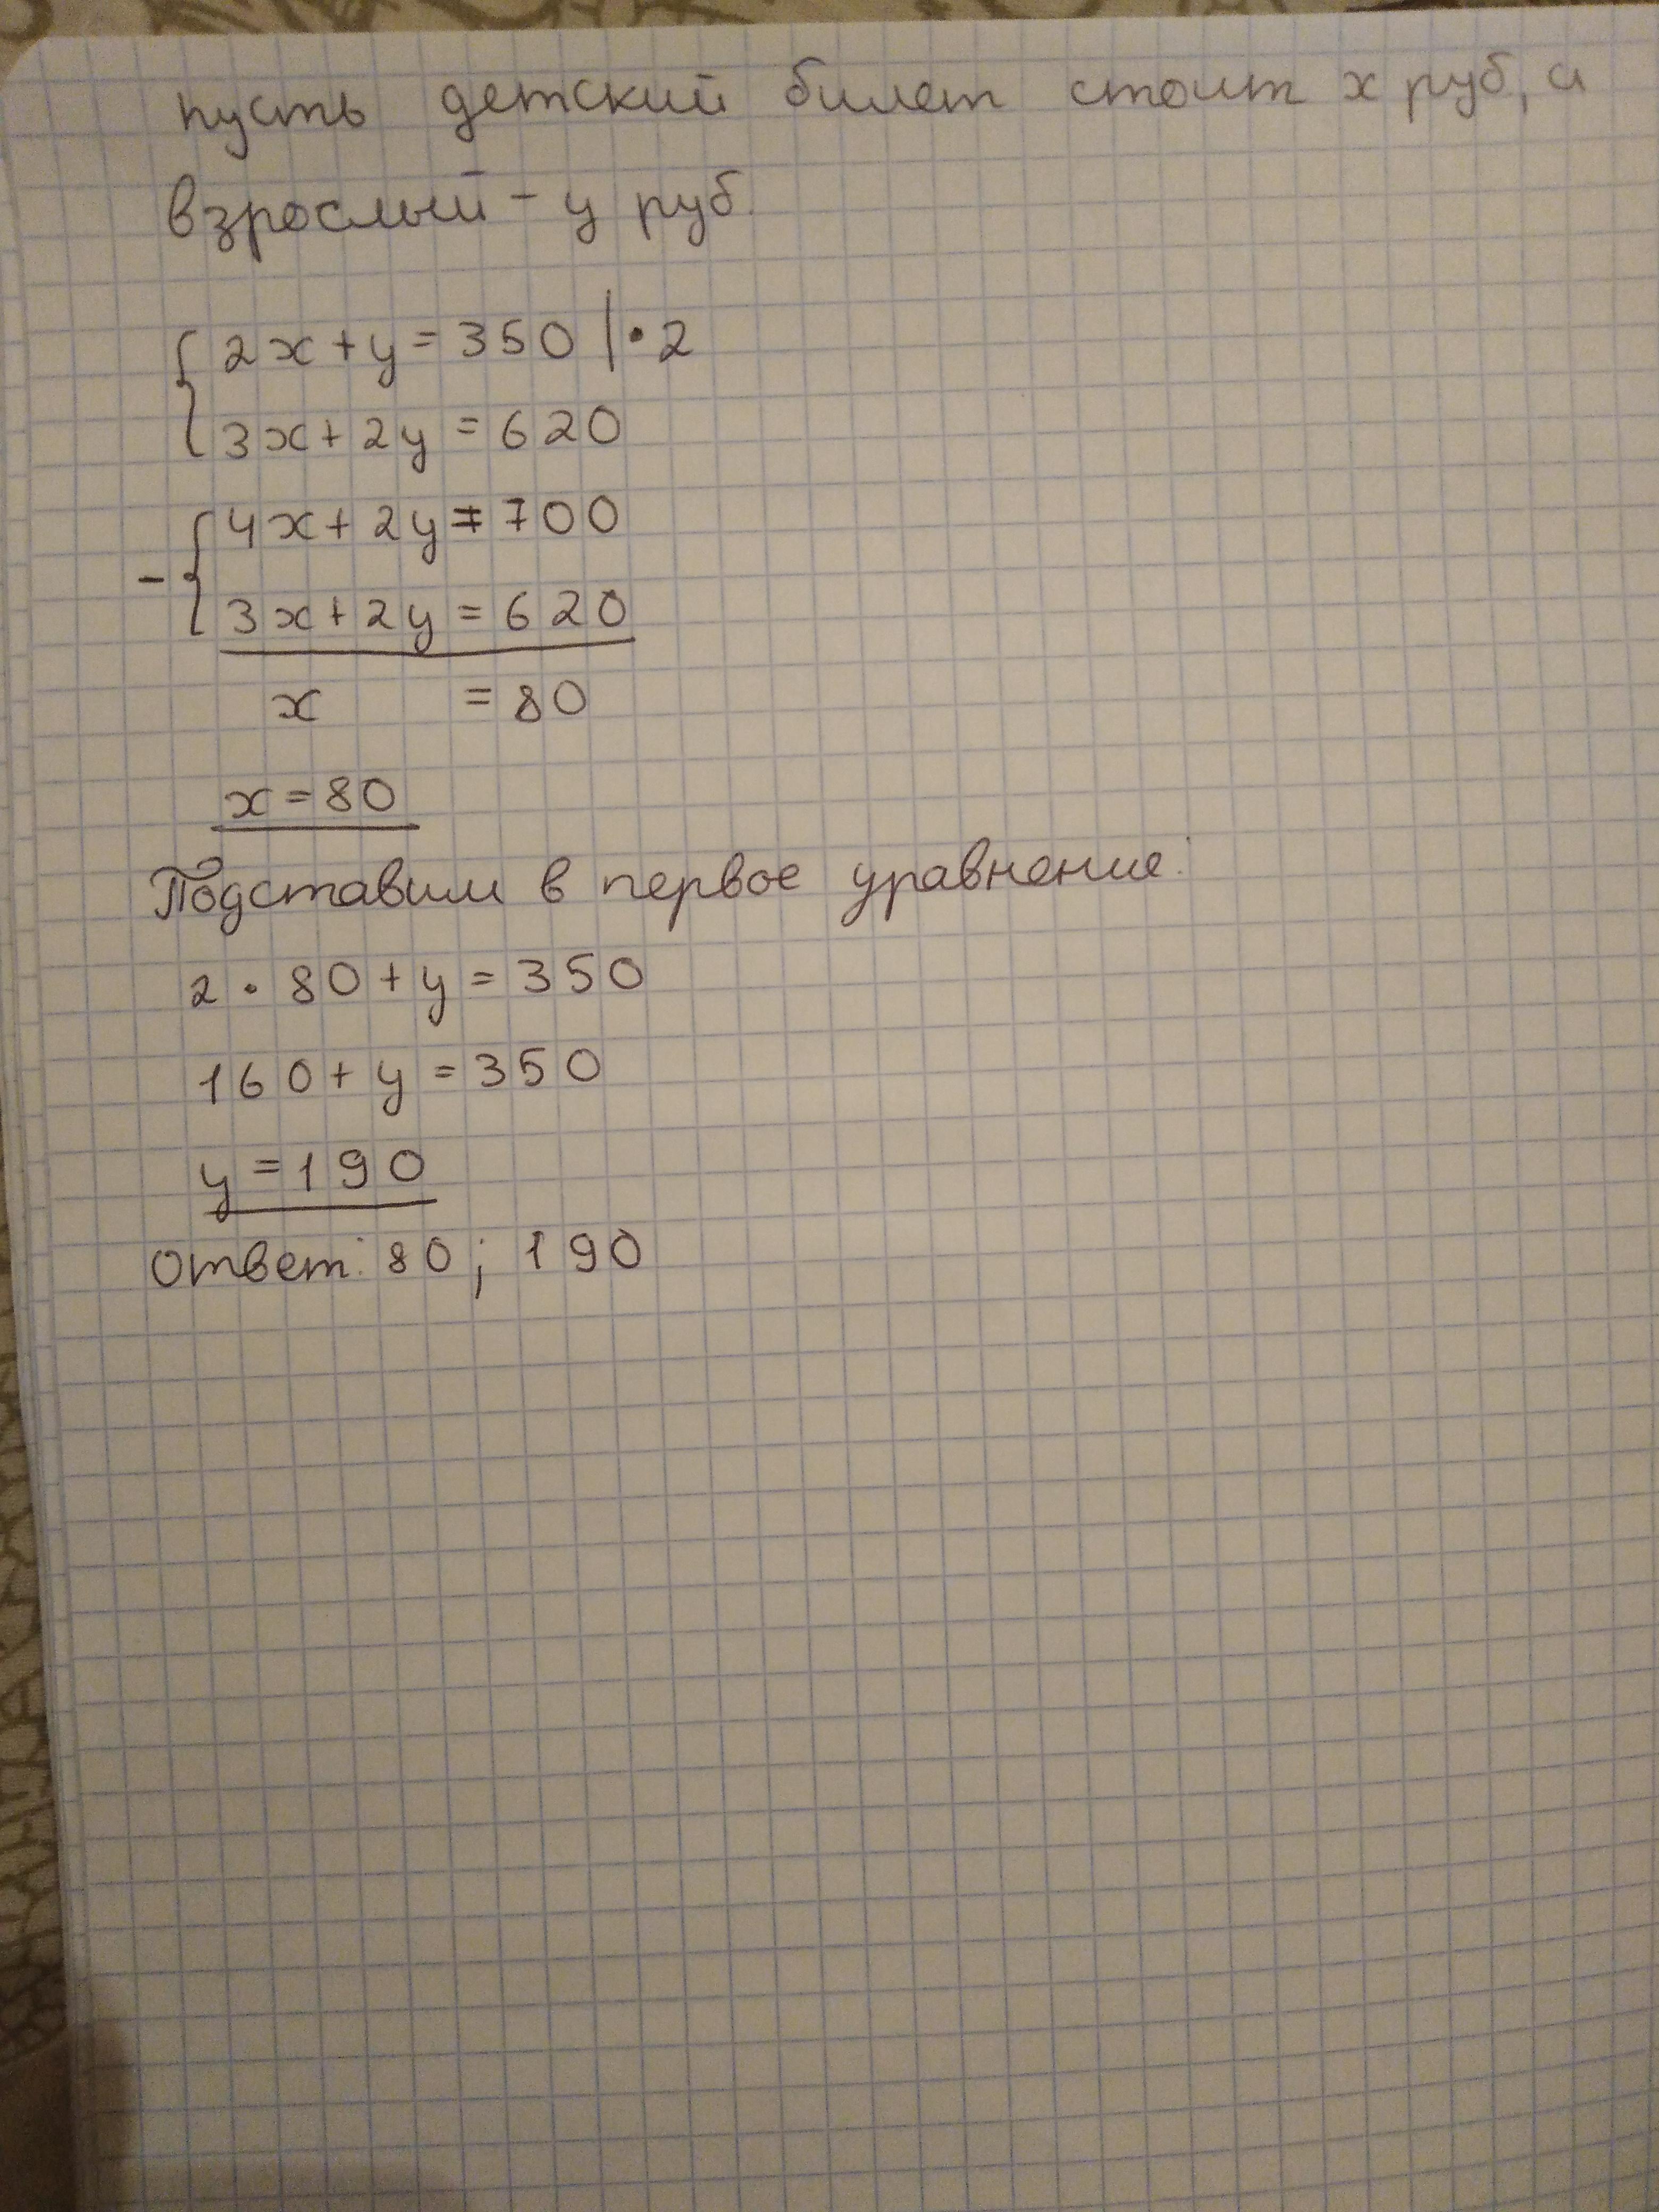 пусть детский билет стоит x руб, а
взрослый - y руб.
2x + y = 350 | • 2
3x + 2y = 620
4x + 2y = 700
-
3x + 2y = 620
x = 80
x = 80
Подставим в первое уравнение:
2 • 80 + y = 350
160 + y = 350
y = 190
Ответ: 80; 190